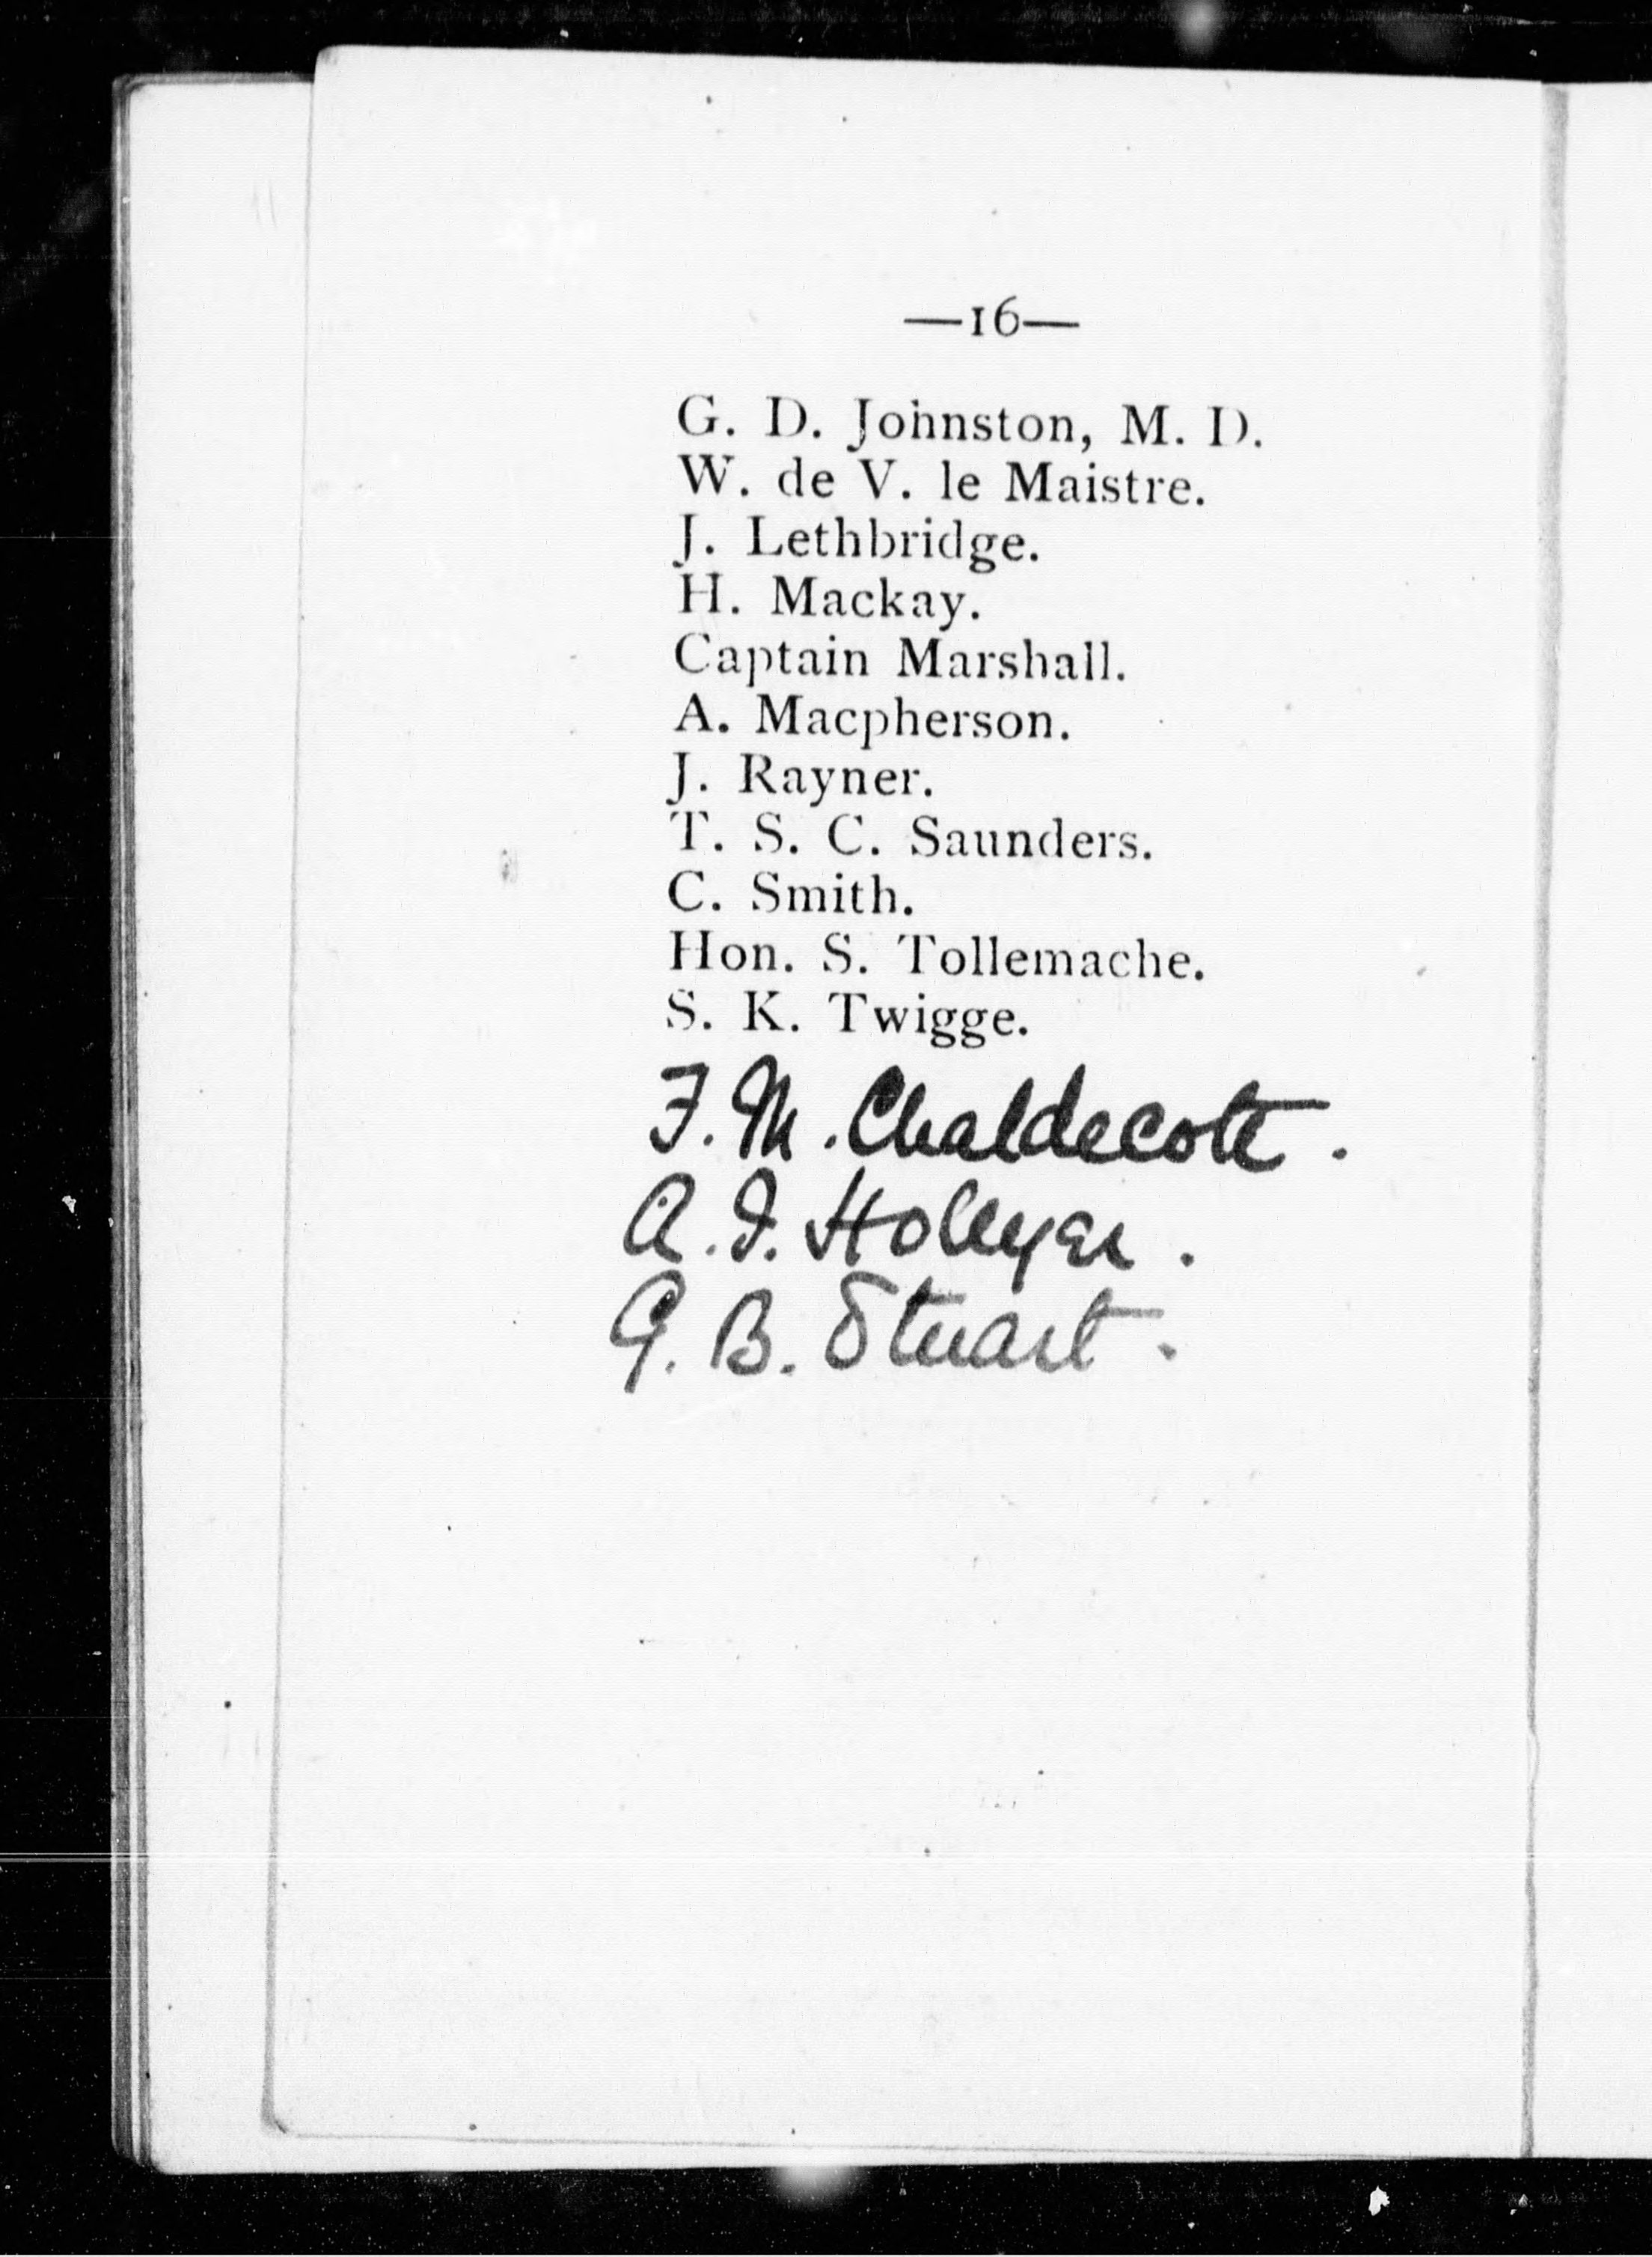 —16—
G. D. Johnston, M. D.
W. de V. le Maistre.
J. Lethbridge.
H. Mackay.
Captain Marshall.
A. Macpherson.
J. Rayner.
T. S. C. Saunders.
C. Smith.
Hon. S. Tollemache.
S. K. Twigge.
F. M. Chaldecott.
A. J. Hollyer.
G. B. Stuart.